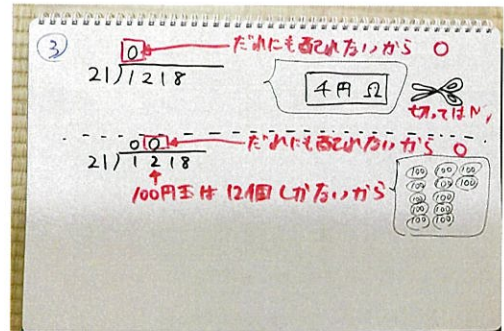 ③
0 ← だれにも配れないから 0
21)1218
千円 Ω
切ってはN,
00 ← だれにも配れないから 0
21)1218
↑
100円玉は12個しかないから
100 100 100
100 100 100
100 100
100 100
100 100